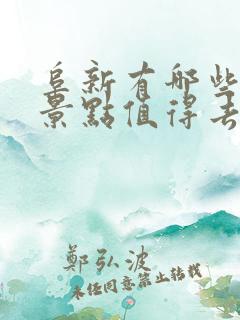 阜新有哪些
景點值得去
鄭弘波
未經同意禁止轉載